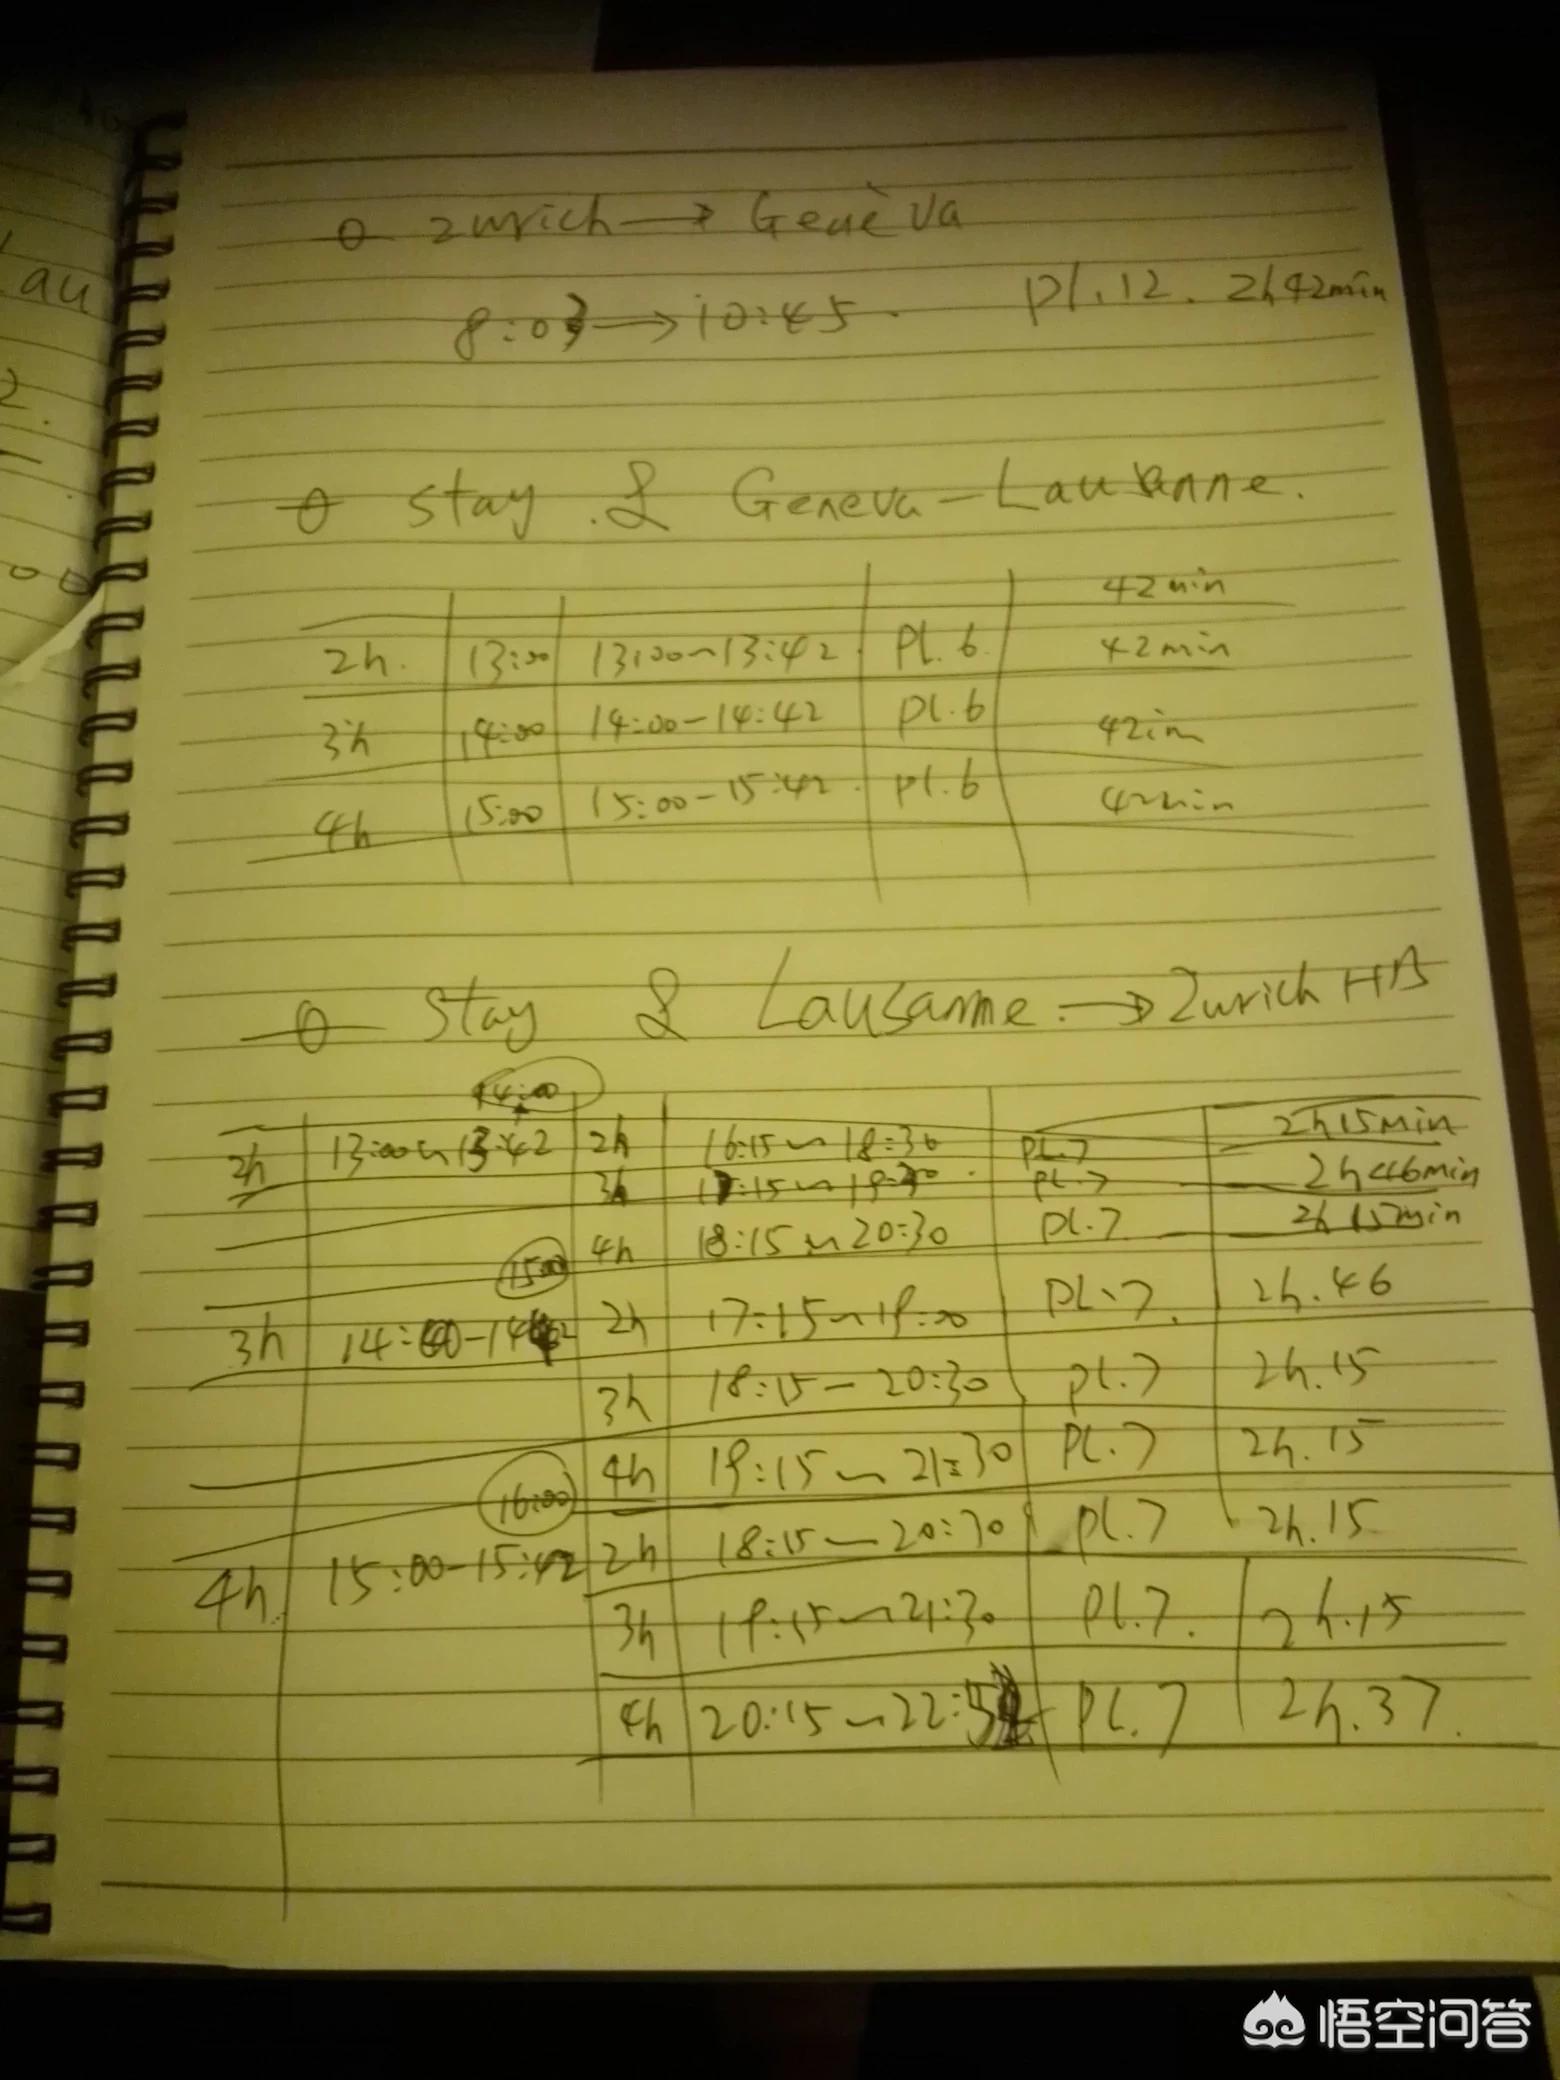 Zurich → Genèva
8:03 → 10:45. Pl.12. 2h42min
Stay & Geneva-Lausanne.
42min
2h. 13:00 13:00~13:42 Pl.6. 42min
3h 14:00 14:00-14:42 Pl.6
4h 15:00 15:00-15:42. Pl.6 42min
Stay & Lausanne. → Zurich HB
14:00
2h 13:00~13:42 2h 16:15~18:30 Pl.7 2h15min
3h Pl.7 2h46min
4h 18:15~20:30 Pl.7 2h15min
15:00
3h 2h 17:15~ Pl.7. 2h.46
3h 18:15-20:30 Pl.7 2h.15
4h 19:15~21:30 Pl.7 2h.15
16:00
4h. 15:00-15:42 2h 18:15-20:30 Pl.7 2h.15
3h 19:15~21:30 Pl.7. 2h.15
4h 20:15~ Pl.7 2h.37.
au
2.
悟空问答